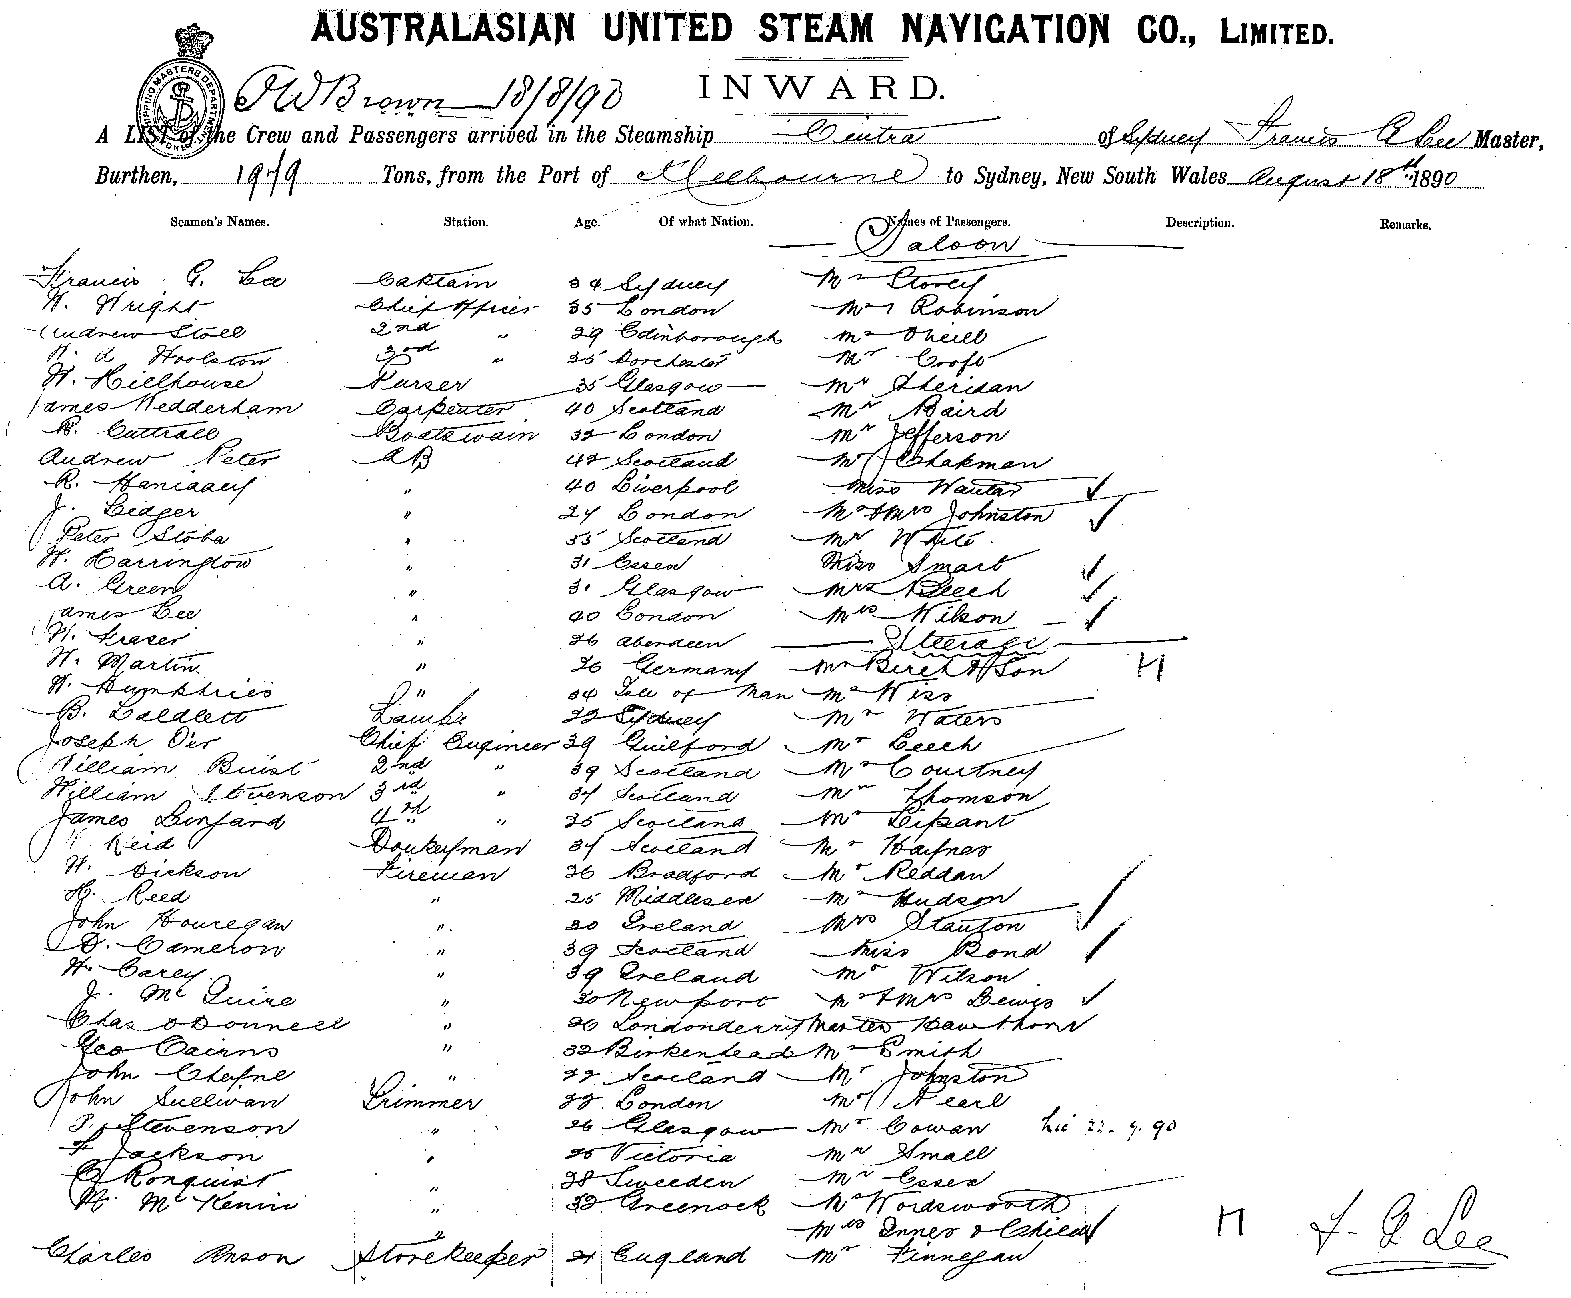 AUSTRALASIAN UNITED STEAM NAVIGATION CO., LIMITED.
INWARD.
SHIPPING MASTERS DEPARTMENT
J W Brown 18/8/90
A LIST of the Crew and Passengers arrived in the Steamship Cintra of Sydney Francis G Lee Master,
Burthen, 1979 Tons, from the Port of Melbourne to Sydney, New South Wales August 18th 1890
Seamen's Names. Station. Age. Of what Nation. Names of Passengers. Description. Remarks.
Saloon
Francis G. Lee Captain 34 Sydney Mr Storey
W. Wright Chief Officer 35 London Mr Robinson
Andrew Stoll 2nd " 29 Edinborough Mr O'Neill
Woolston 3rd " 35 Dorchester Mr Croft
W. Hillhouse Purser 35 Glasgow Mr Sheridan
James Wedderham Carpenter 40 Scotland Mr Baird
R. Cuttrall Boatswain 32 London Mr Jefferson
Andrew Peter AB 42 Scotland Mr Chapman
R. " 40 Liverpool Miss
J. Ledger " 27 London Mr & Mrs Johnston
Peter Stoba " 55 Scotland Mr White
W. Harrington " 31 Essex Miss Smart
A. Green " 31 Glasgow Mrs Leech
James Lee " 40 London Mrs Wilson
W. Fraser " 26 Aberdeen Steerage
W. Martin " 26 Germany Mr Birch & Son
W. Humphries " 34 Isle of Man Mr Wiss
B. Lamps 22 Sydney Mr Waters
Joseph Orr Chief Engineer 39 Guilford Mr Leech
William Buist 2nd " 39 Scotland Mr Courtney
William Stevenson 3rd " 34 Scotland Mr Thomson
James Linfard 4th " 25 Scotland Mr
Reid Donkeyman 34 Scotland Mr Haynes
W. Dickson Fireman 26 Bradford Mr Reddan
H. Reed " 25 Middlesex Mr Hudson
John Houregan " 30 Ireland Mrs Stanton
D. Cameron " 39 Scotland Miss Bond
W. Carey " 39 Ireland Mr Wilson
J. McGuire " 30 Newport Mr & Mrs Dewis
Chas O'Donnell " 26 Londonderry Master Hawthorn
Geo Cairns " 32 Birkenhead Mr Smith
John Cheyne " 27 Scotland Mr Johnston
John Sullivan Trimmer 22 London Mr Pearl
Stevenson " 26 Glasgow Mr Cowan
Jackson " 25 Victoria Mr Small
C Ronquist " 28 Sweeden Mr Essex
W. McKenin " 32 Greenock Mr Wordsworth
" Mrs Innes & Child
Charles Anson Storekeeper 21 England Mr Finnegan
F. G Lee